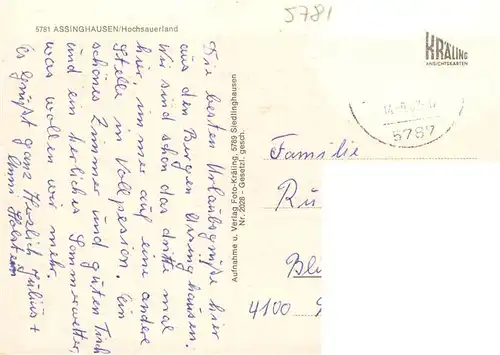 5781
5781 ASSINGHAUSEN/Hochsauerland
KRÄLING
ANSICHTSKARTEN
5787
Die besten Urlaubsgrüße hier
aus den Bergen Assinghausen.
Wir sind schon das dritte mal
hier, immer auf eine andere
Stelle in Vollpesion. Ein
schönes Zimmer und guten Tisch
und ein herliches Sommerwetter,
was wollen wir mehr.
Es grüßt ganz Herzlich Julius +
Anni Holstein
Aufnahme u. Verlag Foto-Kräling, 5789 Siedlinghausen
Nr. 2028 - Gesetzl. gesch.
Familie
Ru
Bl
4100